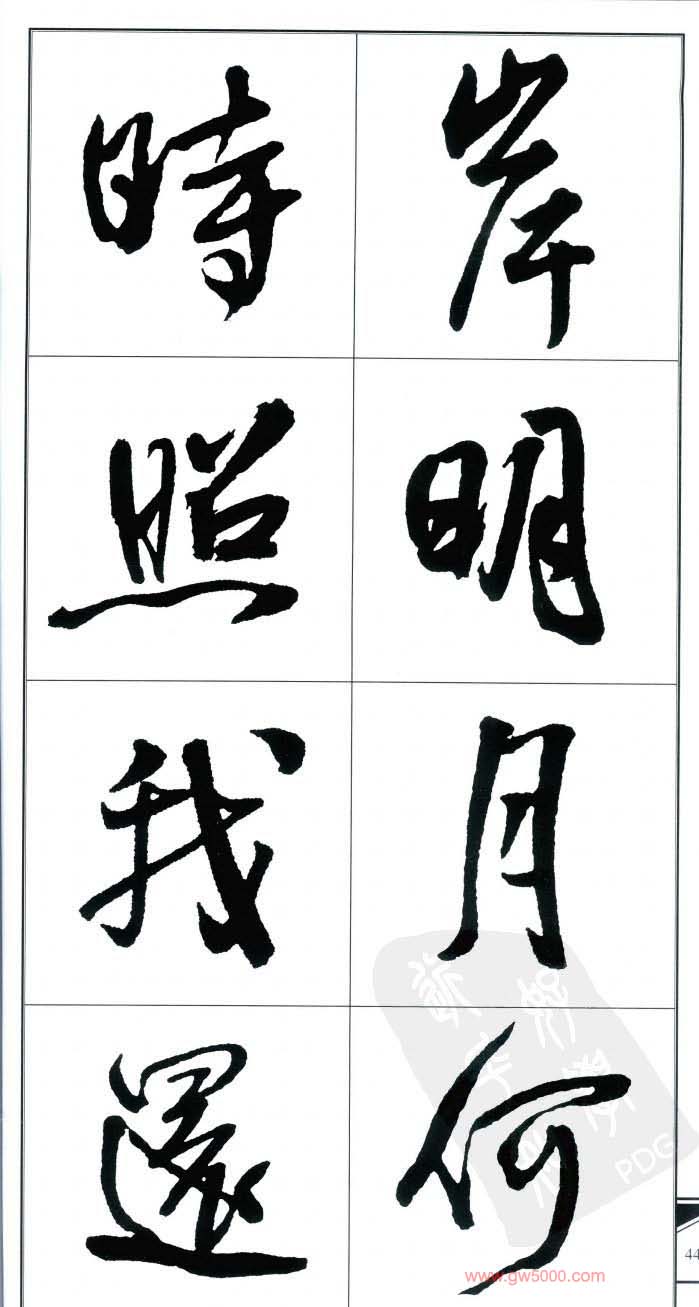 岸明月何
時照我還
44
www.gw5000.com
PDG